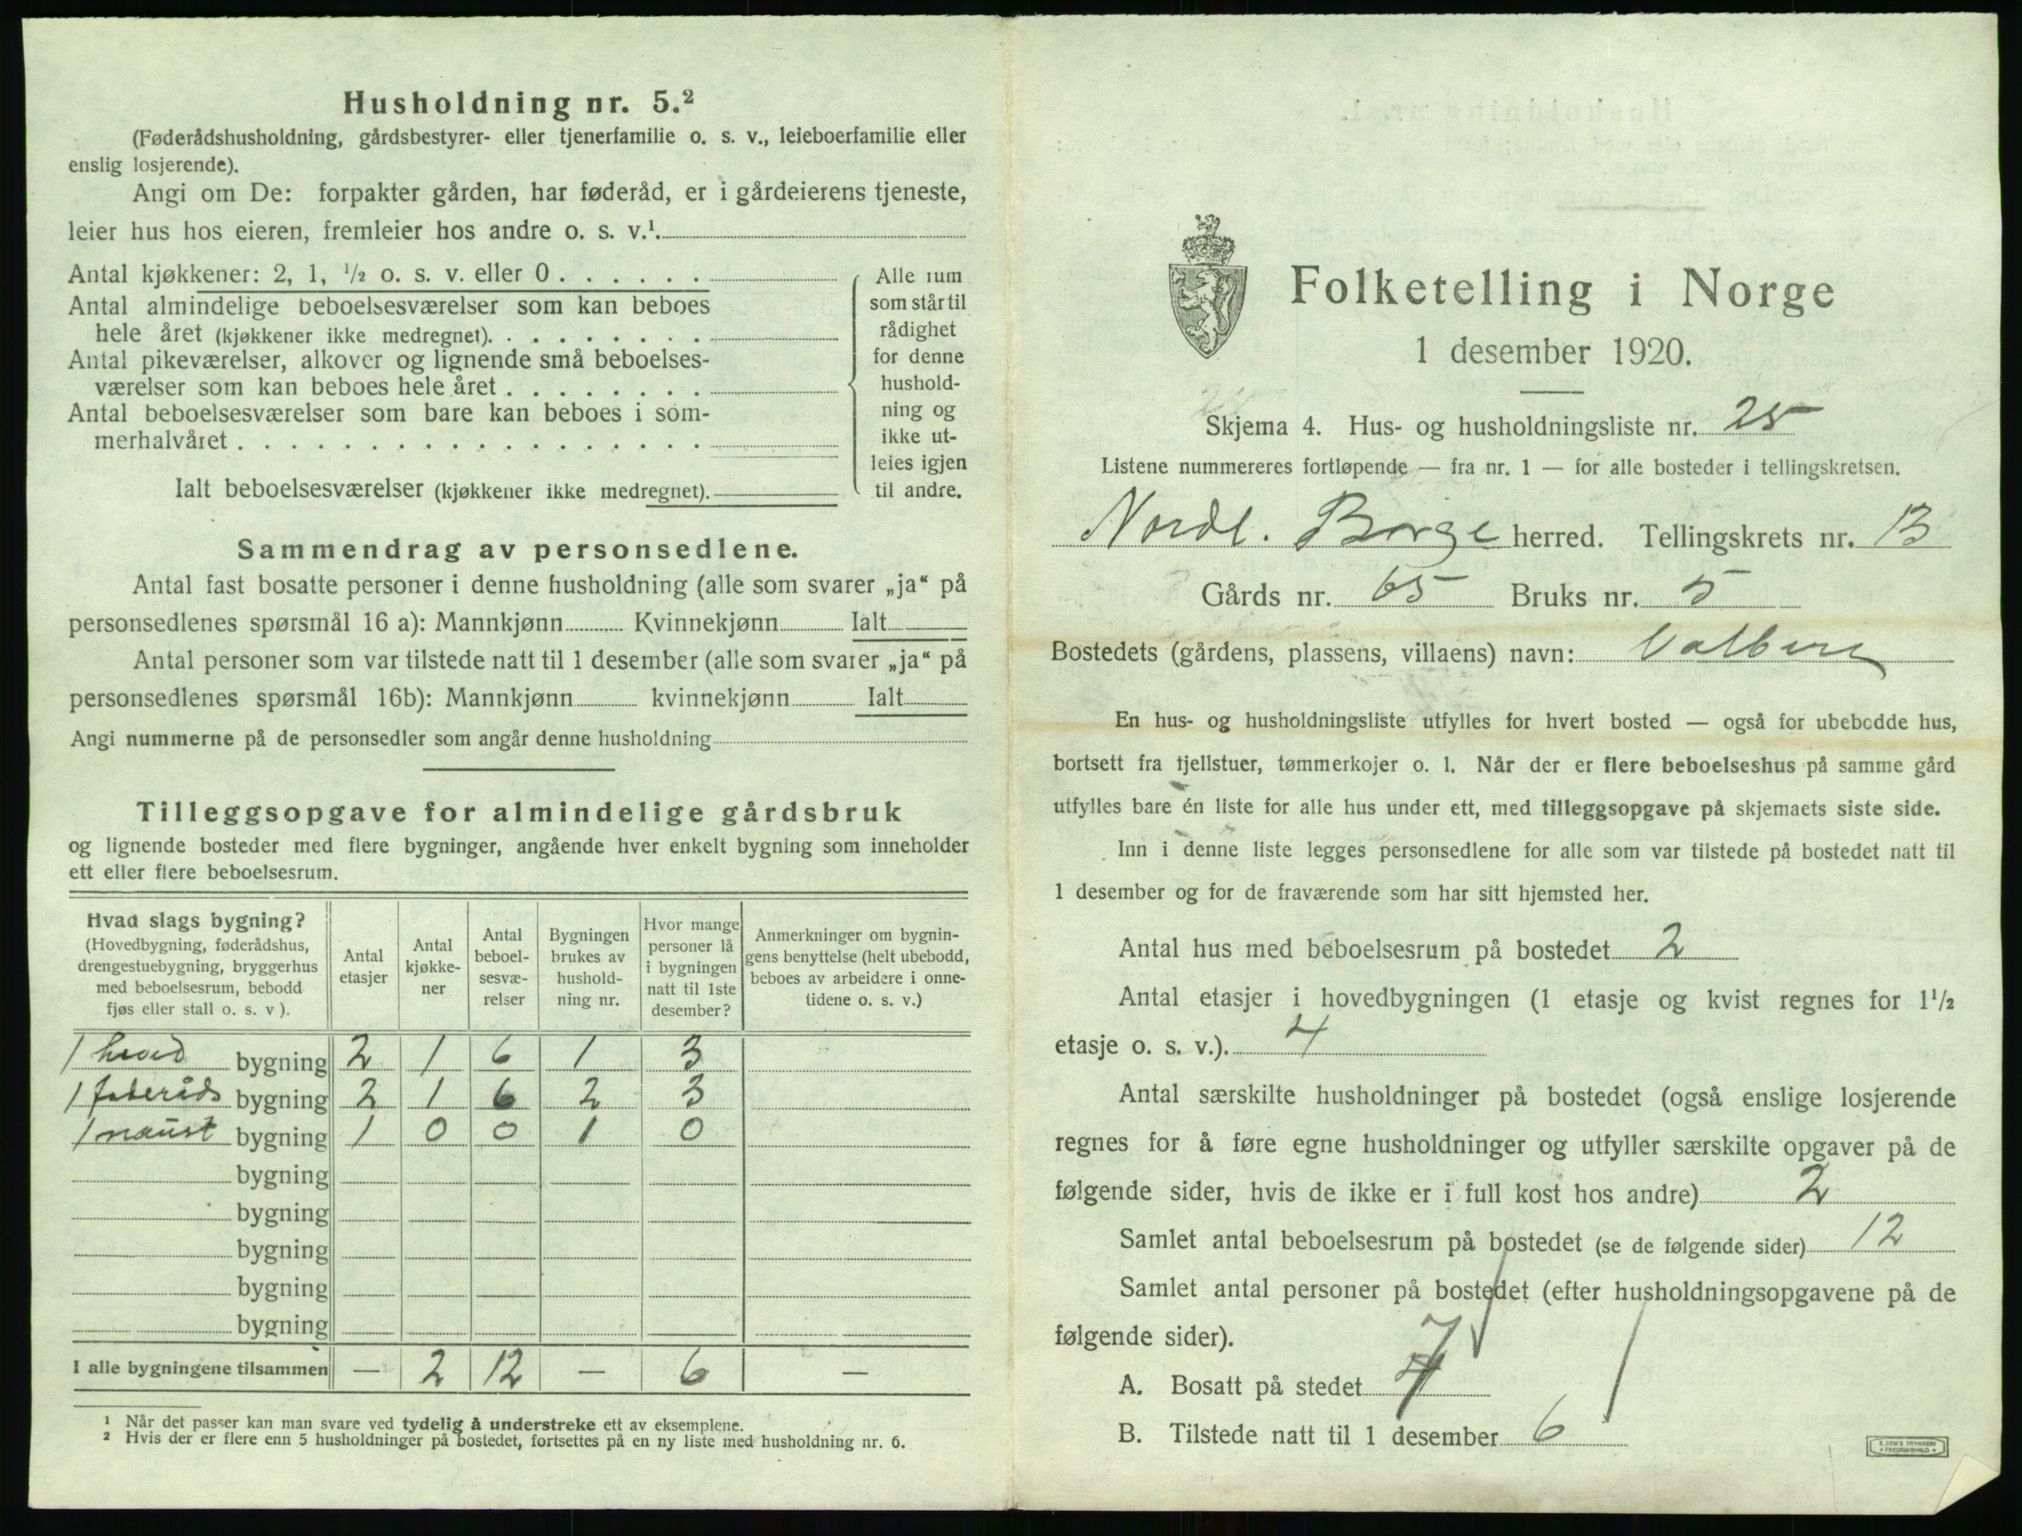 Husholdning nr. 5.²
(Føderådshusholdning, gårdsbestyrer- eller tjenerfamilie o. s. v., leieboerfamilie eller
enslig losjerende).
Angi om De: forpakter gården, har føderåd, er i gårdeierens tjeneste,
leier hus hos eieren, fremleier hos andre o. s. v.¹.
Antal kjøkkener: 2, 1, ½ o. s. v. eller 0 . . . . . .
Antal almindelige beboelsesværelser som kan beboes
hele året (kjøkkener ikke medregnet). . . . . . . . .
Antal pikeværelser, alkover og lignende små beboelses-
værelser som kan beboes hele året . . . . . . . .
Antal beboelsesværelser som bare kan beboes i som-
merhalvåret . . . . . . . . . . . . . . . . . .
Ialt beboelsesværelser (kjøkkener ikke medregnet).
Alle rum
som står til
rådighet
for denne
hushold-
ning og
ikke ut-
leies igjen
til andre.
Sammendrag av personsedlene.
Antal fast bosatte personer i denne husholdning (alle som svarer „ja“ på
personsedlenes spørsmål 16 a): Mannkjønn Kvinnekjønn Ialt
Antal personer som var tilstede natt til 1 desember (alle som svarer „ja“ på
personsedlenes spørsmål 16b): Mannkjønn kvinnekjønn Ialt
Angi nummerne på de personsedler som angår denne husholdning
Tilleggsopgave for almindelige gårdsbruk
og lignende bosteder med flere bygninger, angående hver enkelt bygning som inneholder
ett eller flere beboelsesrum.
Hvad slags bygning?
(Hovedbygning, føderådshus,
drengestuebygning, bryggerhus
med beboelsesrum, bebodd
fjøs eller stall o. s. v ).
Antal
etasjer
Antal
kjøkke-
ner
Antal
beboel-
sesvæ-
relser
Bygningen
brukes av
hushold-
ning nr.
Hvor mange
personer lå
i bygningen
natt til 1ste
desember?
Anmerkninger om bygnin-
gens benyttelse (helt ubebodd,
beboes av arbeidere i onne-
tidene o. s. v.)
1 hoved bygning 2 1 6 1 3
1 føderåds bygning 2 1 6 2 3
1 naust bygning 1 0 0 1 0
bygning
bygning
bygning
bygning
bygning
I alle bygningene tilsammen — 2 12 — 6 —
¹ Når det passer kan man svare ved tydelig å understreke ett av eksemplene.
² Hvis der er flere enn 5 husholdninger på bostedet, fortsettes på en ny liste med husholdning nr. 6.
Folketelling i Norge
1 desember 1920.
Skjema 4. Hus- og husholdningsliste nr. 25
Listene nummereres fortløpende — fra nr. 1 — for alle bosteder i tellingskretsen.
Nordl. Borge herred. Tellingskrets nr. 13
Gårds nr. 65 Bruks nr. 5
Bostedets (gårdens, plassens, villaens) navn: Valberg
En hus- og husholdningsliste utfylles for hvert bosted — også for ubebodde hus,
bortsett fra fjellstuer, tømmerkojer o. l. Når der er flere beboelseshus på samme gård
utfylles bare én liste for alle hus under ett, med tilleggsopgave på skjemaets siste side.
Inn i denne liste legges personsedlene for alle som var tilstede på bostedet natt til
1 desember og for de fraværende som har sitt hjemsted her.
Antal hus med beboelsesrum på bostedet 2
Antal etasjer i hovedbygningen (1 etasje og kvist regnes for 1½
etasje o. s. v.). 4
Antal særskilte husholdninger på bostedet (også enslige losjerende
regnes for å føre egne husholdninger og utfyller særskilte opgaver på de
følgende sider, hvis de ikke er i full kost hos andre) 2
Samlet antal beboelsesrum på bostedet (se de følgende sider) 12
Samlet antal personer på bostedet (efter husholdningsopgavene på de
følgende sider).
A. Bosatt på stedet 7
B. Tilstede natt til 1 desember 6
E. SEM'S TRYKKERI
FREDRIKSHALD